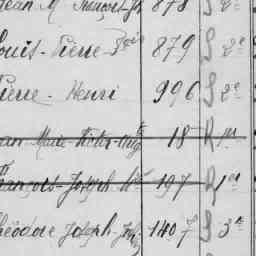 Jean M François-J 878 S 2e
Louis-Pierre 879 S 2e
Pierre-Henri 996 S 2e
Jean Marie-Victor-Aug 18 R 1er
François-Joseph 197 R 1er
Théodore Joseph-J 1407 S 3e